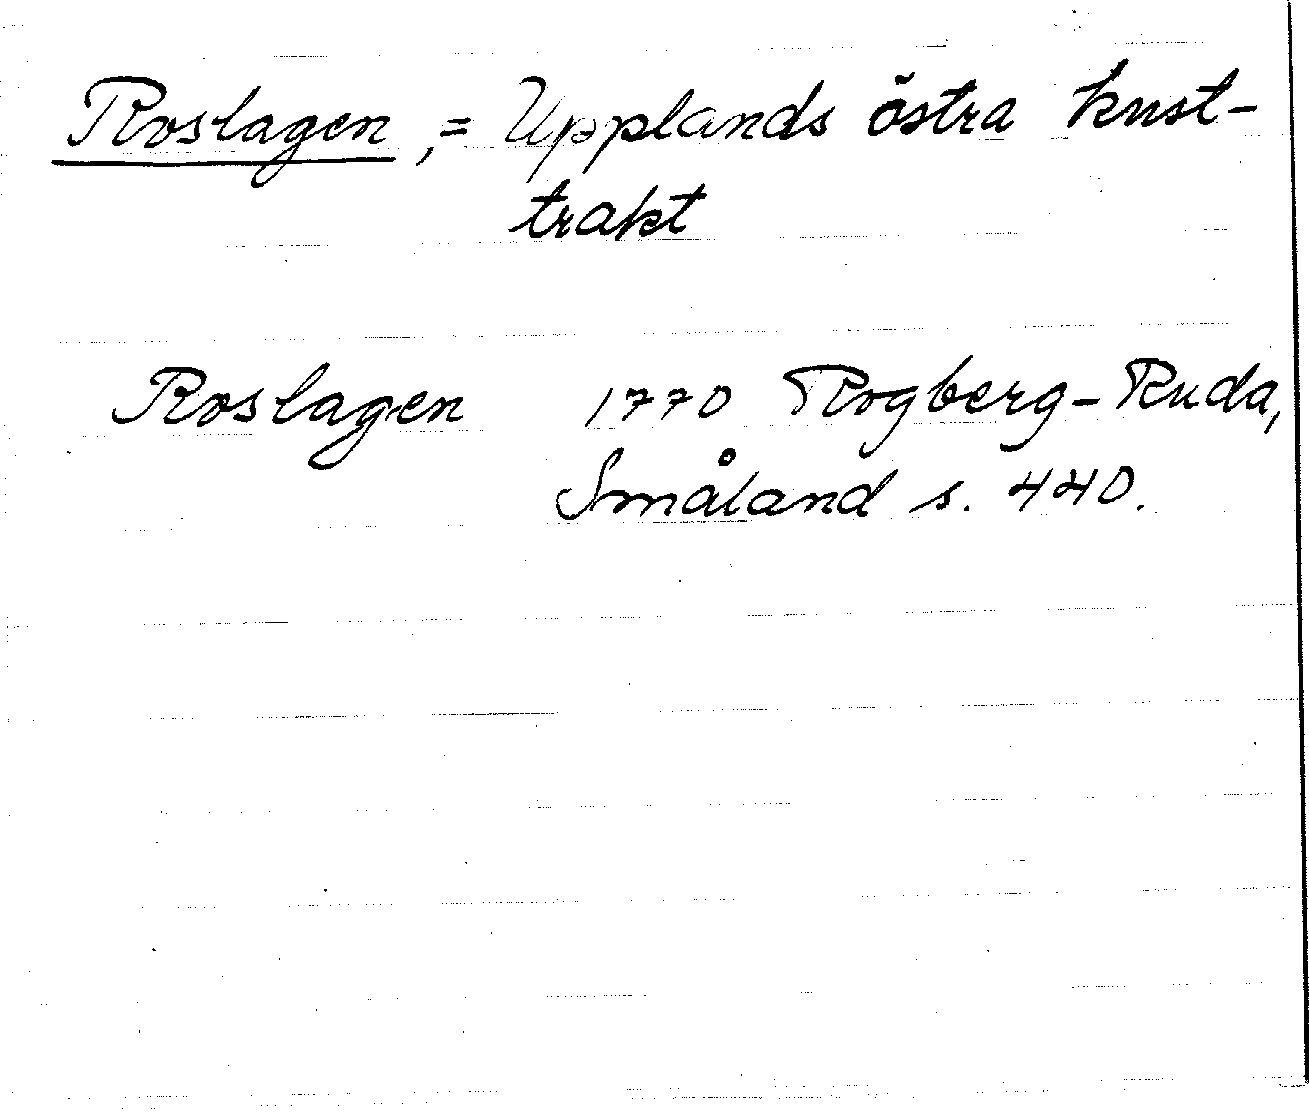 Roslagen, = Upplands östra kust-
trakt
Roslagen 1770 Rogberg-Ruda,
Småland s. 440.